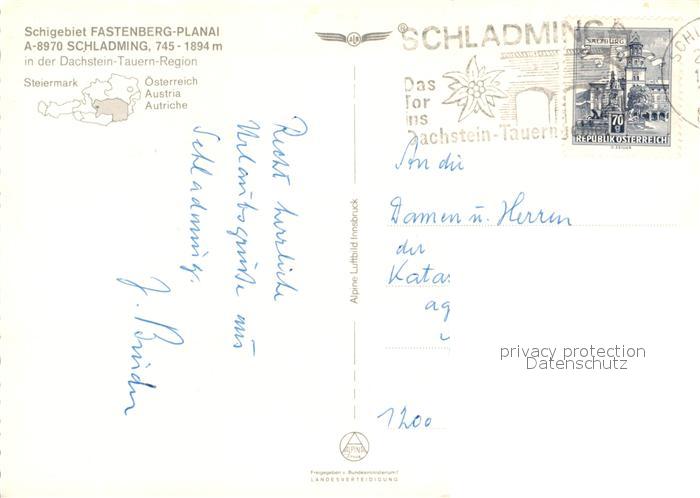 Schigebiet FASTENBERG-PLANAI
A-8970 SCHLADMING, 745 - 1894 m
in der Dachstein-Tauern-Region
Steiermark
Österreich
Austria
Autriche
Recht herzliche
Urlaubsgrüße aus
Schladming.
Alpine Luftbild Innsbruck
ALPINE
Freigegeben v. Bundesministerium f.
LANDESVERTEIDIGUNG
SCHLADMING
Das
Tor
ins
Dachstein-Tauern
SALZBURG
70
g
REPUBLIK ÖSTERREICH
An die
Damen u. Herren
der
Kata
ag
1200
privacy protection
Datenschutz